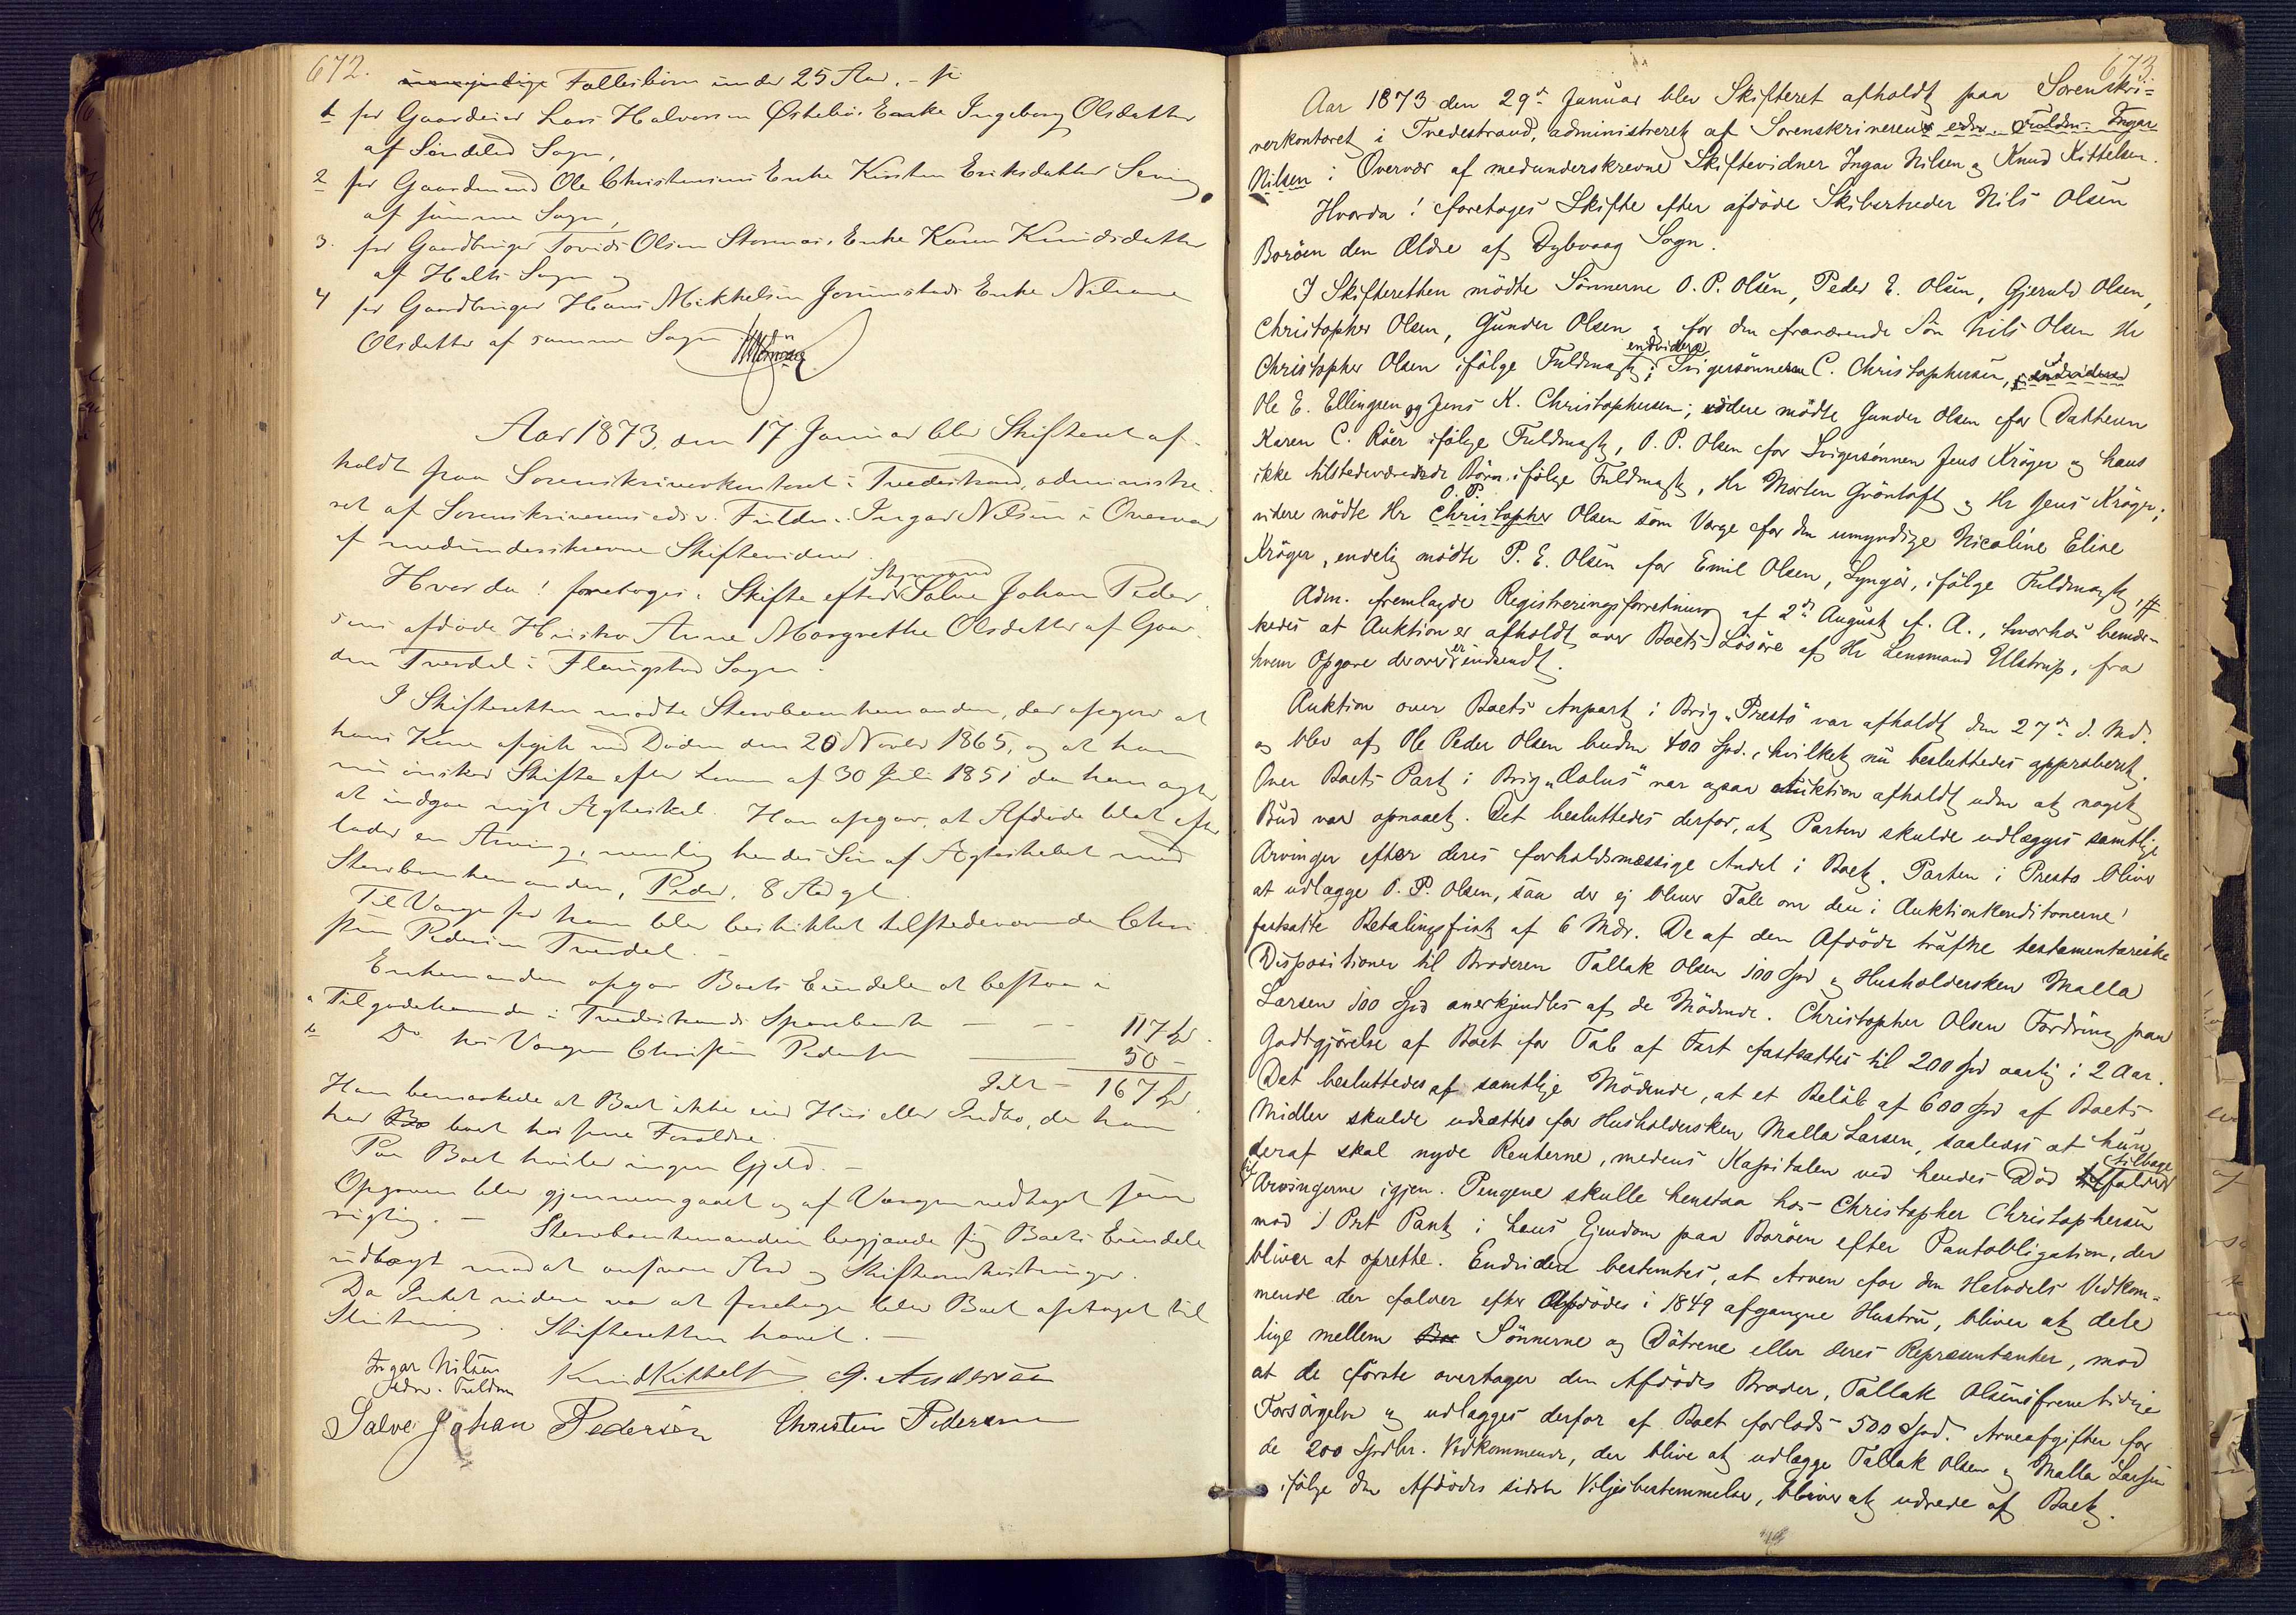 672.
umyndige Fællesbörn under 25 Aar. -
1 for Gaardeier Lars Halvorsen Östebö's Enke Ingeborg Olsdatter
af Söndeled Sogn,
2 for Gaardmand Ole Christensens Enke Kirsten Eriksdatter
af samme Sogn,
3. for Gaardbruger Tovids Olsen Enke Karen Knudsdatter
af Holts Sogn og
4 for Gaardbruger Hans Mikkelsen Enke
Olsdatter af samme Sogn
Aar 1873, den 17 Januar blev Skifteret af-
holdt paa Sorenskriverkontoret i Tvedestrand, administre-
ret af Sorenskriverens edsv. Fuldm. Ingar Nilsen i Overvær
af medunderskrevne Skiftevidner.
Styrmand
Hvorda! foretoges Skifte efter Salve Johan Peder-
sens afdöde Hustru Anne Margrethe Olsdatter af Gaar-
den Tverdal i Flangstad Sogn.
I Skifteretten mödte Stervboenkemanden, der opgav at
hans Kone afgik ved Döden den 20 Novbr 1865, og at han
nu önsker Skifte efter Loven af 30 Juli 1851 da han agter
at indgaa nyt Ægteskab. Han opgav, at Afdöde blot efter-
lader en Arving, nemlig hendes Sön af Ægteskabet med
Stervboenkemanden, Peder, 8 Aar gl.
Til Værge for ham blev beskikket tilstedeværende Chri-
sten Pedersen Tverdal. -
Enkemanden opgav Boets Eiendele at bestaa i
a Tilgodehavende i Tvedestrands Sparebank - - - 117 Spd.
b Do hos Værgen Christen Pedersen 50 -
Talt - 167 Spd.
Han bemærkede at Boet ikke eied Hus eller Indbo, da han
har Bo boet hos sine Forældre.
Paa Boet hviler ingen Gjeld. -
Opgaven blev gjennemgaaet og af Værgen vedtaget som
rigtig. - Stervboenkemanden begjærede sig Boets Eiendele
udlagt mod at ansvare Arv og Skifteomkostninger.
Da Intet videre var at foretage blev Boet optaget til
Slutning. Skifteretten hævet. -
Ingar Nilsen Knud Kittelsen G. Andersen
edsv. Fuldm
Salve Johan Pedersen Christen Pedersen
673
Aar 1873 den 29de Januar blev Skifteret afholdt paa Sorenskri-
verkontoret i Tvedestrand, administreret af Sorenskriverens edsv. Fuldm. Ingar
Nilsen i Overvær af medunderskrevne Skiftevidner Ingar Nilsen og Knud Kittelsen.
Hvorda! foretoges Skifte efter afdöde Skibsrheder Nils Olsen
Boröen den Ældre af Dybvaag Sogn.
I Skifteretten mödte Sönnerne O. P. Olsen, Peder E. Olsen, Gjeruld Olsen,
Christopher Olsen, Gunder Olsen og for den fraværende Sön Nils Olsen Hr
endvidere
Christopher Olsen ifölge Fuldmagt; Svigersönnerne C. Christophersen, endvidere
Ole E. Ellingsen og Jens K. Christophersen; videre mödte Gunder Olsen for Datteren
Karen C. Röer ifölge Fuldmagt, O. P. Olsen for Svigersönnen Jens Kröger og hans
ikke tilstedeværende Börn ifölge Fuldmagt, Hr Morten Gröntoft og Hr Jens Kröger;
O. P.
videre mödte Hr Christopher Olsen som Værge for den umyndige Nicoline Eline
Kröger, endelig mödte P. E. Olsen for Emil Olsen, Lyngör, ifölge Fuldmagt,
Adm. fremlagde Registreringsforretning af 2den August f. A., hvorhos bemær-
kedes at Auktion er afholdt over Boets Lösöre af Hr Lensmand Ulstrup, fra
hvem Opgave derover er indsendt.
Auktion over Boets Anpart i Brig „Presto" var afholdt den 27de d. Md.
og blev af Ole Peder Olsen buden 400 Spd., hvilket nu besluttedes approberet.
Over Boets Part i Brig „Æolus" var ogsaa Auktion afholdt uden at noget
Bud var opnaaet. Det besluttedes derfor, at Parten skulde udlægges samtlige
Arvinger efter deres forholdsmæssige Andel i Boet. Parten i Presto bliver
at udlægge O. P. Olsen, saa der ej bliver Tale om den i Auktionkonditonerne
fastsatte Betalingsfrist af 6 Mdr. De af den Afdöde trufne testamentariske
Dispositioner til Broderen Tallak Olsen 100 Spd og Husholdersken Malla
Larsen 100 Spd anerkjendtes af de Mödende. Christopher Olsen Fordring paa
Godtgjörelse af Boet for Tab af Fart fastsattes til 200 Spd aarlig i 2 Aar.
Det besluttedes af samtlige Mödende, at et Belöb af 600 Spd af Boets
Midler skulde udsættes for Husholdersken Malla Larsen, saaledes at hun
tilbage
deraf skal nyde Renterne, medens Kapitalen ved hendes Död tilfalder
til Arvingerne igjen. Pengene skulle henstaa hos Christopher Christophersen
mod 1 Prt Pant i hans Ejendom paa Boröen efter Pantobligation, der
bliver at oprette. Endvidere bestemtes, at Arven for den Halvdels Vedkom-
mende der falder efter Afdödes i 1849 afgangne Hustru, bliver at dele
lige mellem Boe Sönnerne og Dötrene eller deres Repræsentanter, mod
at de förste overtager den Afdödes Broder, Tallak Olsens fremtidige
Forsörgelse og udlægges derfor af Boet forlods 500 Spd. Arveafgiften for
de 200 Spdlr. Vedkommende, der blive at udlægge Tallak Olsen og Malla Larsen
ifölge den Afdödes sidste Viljesbestemmelse, bliver at udrede af Boet.